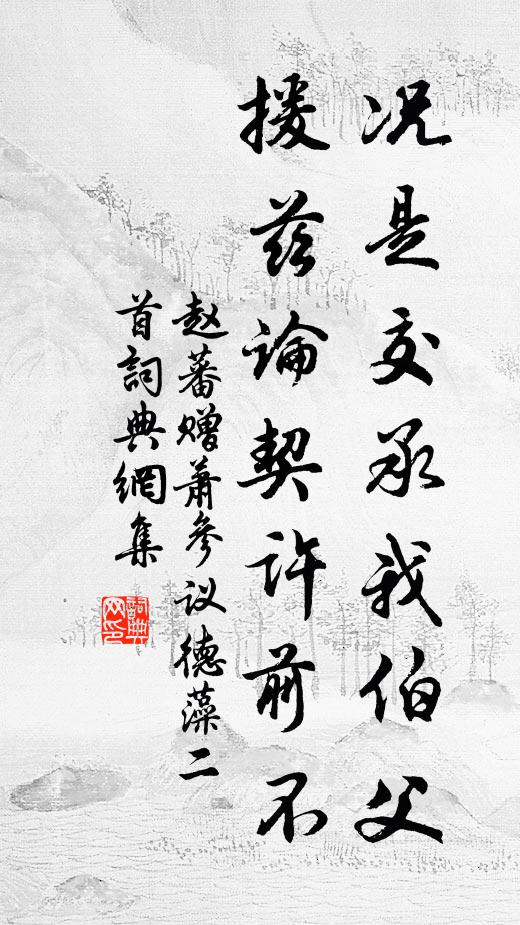 况是交承我伯父
援兹论契许前不
赵蕃赠萧参议德藻二
首词典網集
詞典網印